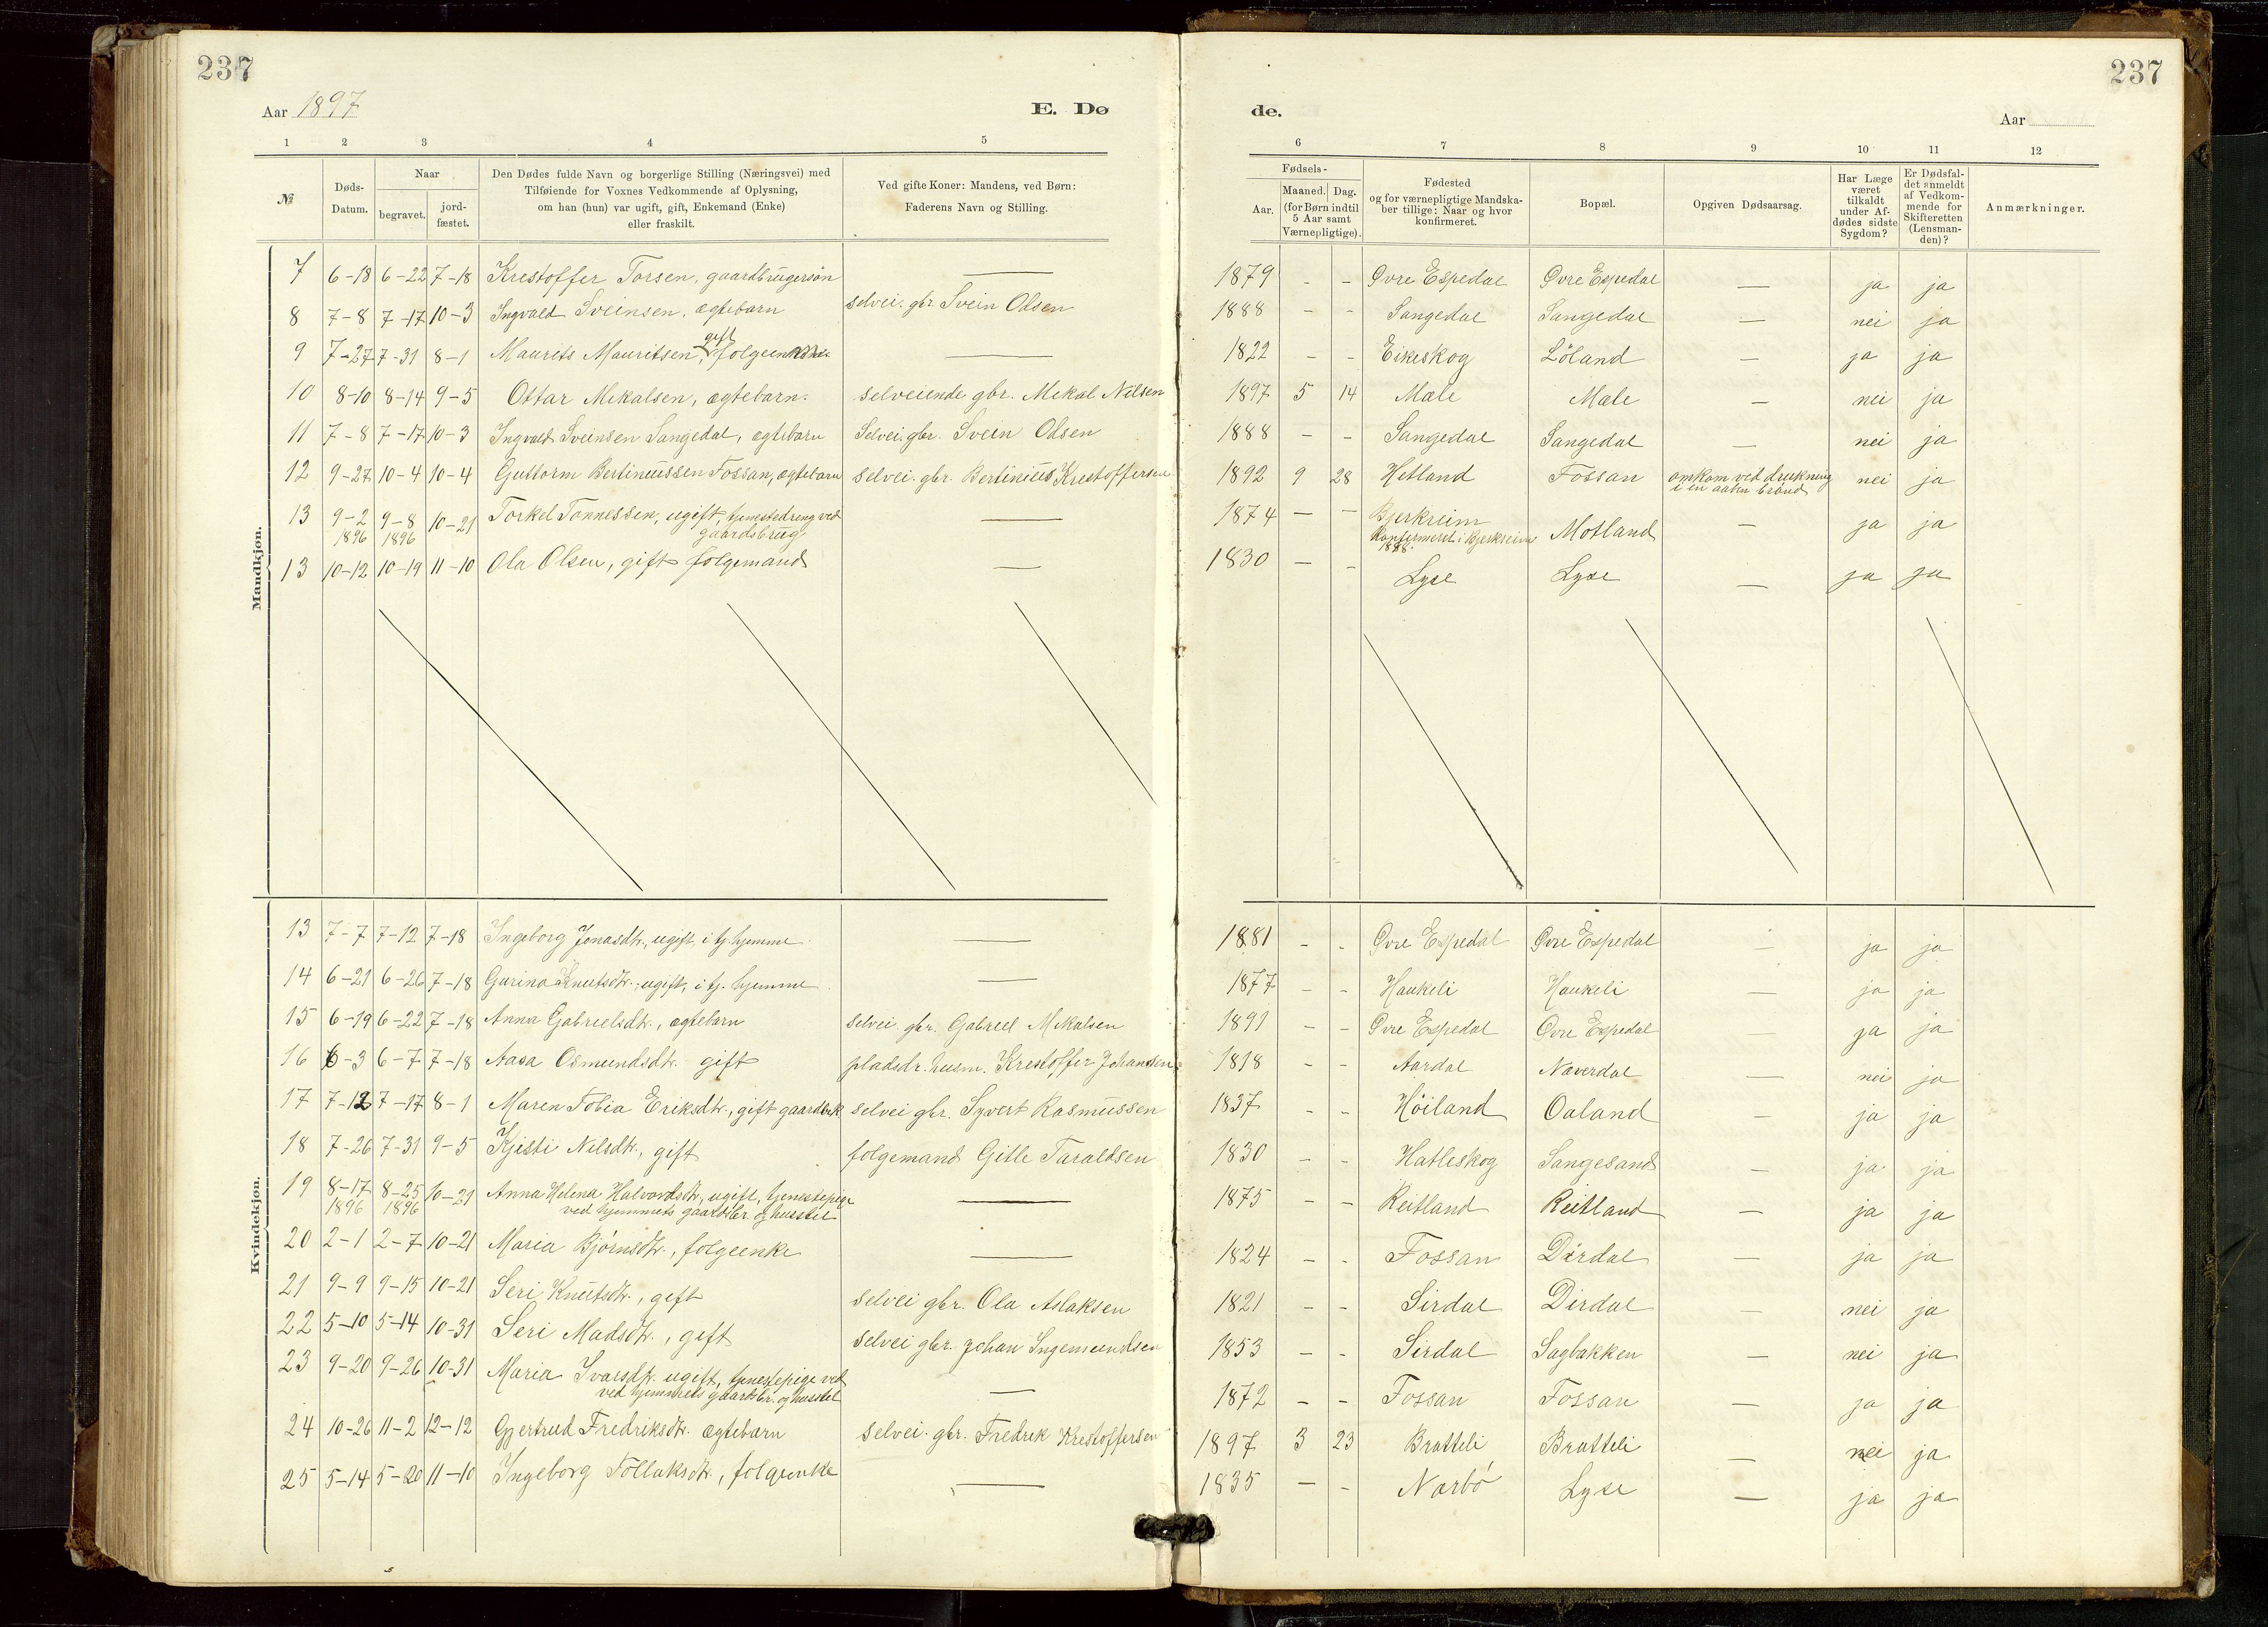 237
237
Aar 1897
E. Dø
de.
Aar
1 2 3 4 5
6 7 8 9 10 11 12
№
Døds-
Datum.
Naar
begravet.
jord-
fæstet.
Den Dødes fulde Navn og borgerlige Stilling (Næringsvei) med
Tilføiende for Voxnes Vedkommende af Oplysning,
om han (hun) var ugift, gift, Enkemand (Enke)
eller fraskilt.
Ved gifte Koner: Mandens, ved Børn:
Faderens Navn og Stilling.
Fødsels-
Aar.
Maaned. Dag.
(for Børn indtil
5 Aar samt
Værnepligtige).
Fødested
og for værnepligtige Mandska-
ber tillige: Naar og hvor
konfirmeret.
Bopæl.
Opgiven Dødsaarsag.
Har Læge
været
tilkaldt
under Af-
dødes sidste
Sygdom?
Er Dødsfal-
det anmeldt
af Vedkom-
mende for
Skifteretten
(Lensman-
den)?
Anmærkninger.
Mandkjøn.
7 6-18 6-22 7-18 Krestoffer Torsen, gaardbrugersøn — 1879 - - Øvre Espedal Øvre Espedal — ja ja
8 7-8 7-17 10-3 Ingvald Sveinsen, ægtebarn selvei. gbr. Svein Olsen 1888 - - Sangedal Sangedal — nei ja
9 7-27 7-31 8-1 Maurits Mauritsen, gift — 1822 - - Eikeskog Löland — ja ja
10 8-10 8-14 9-5 Ottar Mekalsen, ægtebarn. selveiende gbr. Mekal Nilsen 1897 5 14 Mæle Mæle — nei ja
11 7-8 7-17 10-3 Ingvald Sveinsen Sangedal, ægtebarn Selvei. gbr. Svein Olsen 1888 - - Sangedal Sangedal — nei ja
12 9-27 10-4 10-4 Guttorm Bertineussen Fossan, ægtebarn selvei. gbr. Bertinius Krestoffersen 1892 9 28 Hetland Fossan omkom ved drukning
i en aaben brönd nei ja
13 9-2 9-8 10-21 Torkel Tonnessen, ugift, tjenestedreng ved — 1874 - - Bjerkreim Motland — ja ja
1896 1896 gaardsbrug Konfirmeret i Bjerkreim
1888.
13 10-12 10-19 11-10 Ola Olsen, gift folgemand — 1830 - - Lyse Lyse — ja ja
Kvindekjøn.
13 7-7 7-12 7-18 Ingeborg Jonasdtr., ugift, i tj. hjemme — 1881 - - Øvre Espedal Øvre Espedal — ja ja
14 6-21 6-26 7-18 Gurina Knutsdtr., ugift, i tj. hjemme — 1877 - - Haukeli Haukeli — ja ja
15 6-19 6-22 7-18 Anna Gabrielsdtr., ægtebarn selvei. gbr. Gabriel Mikalsen 1891 - - Øvre Espedal Øvre Espedal — ja ja
16 6-3 6-7 7-18 Aasa Osmundsdtr. gift pladsdr. husm. Krestoffer Johansen 1818 - - Aardal Næverdal — nei ja
17 7-12 7-17 8-1 Maren Tobia Eriksdtr., gift selvei gbr. Syvert Rasmussen 1837 - - Höiland Oaland — ja ja
18 7-26 7-31 9-5 Kjisti Nilsdtr., gift folgemand Gitle Taraldsen 1830 - - Hatleskog Sangesand — ja ja
19 8-17 8-25 10-21 Anna Helena Halvordsdtr., ugift, tjenestepige — 1875 - - Reitland Reitland — ja ja
1896 1896 ved hjemmets gaardsbr. og husstel
20 2-1 2-7 10-21 Maria Bjørnsdtr., folgeenke — 1824 - - Fossan Dirdal — ja ja
21 9-9 9-15 10-21 Seri Knutsdtr., gift selvei gbr. Ola Aslaksen 1821 - - Sirdal Dirdal — nei ja
22 5-10 5-14 10-31 Seri Madsdtr., gift selvei gbr. Johan Ingemundsen 1853 - - Sirdal Sagbakken — nei ja
23 9-20 9-26 10-31 Maria Ivarsdtr. ugift, tjenestepige ved — 1872 - - Fossan Fossan — ja ja
ved hjemmets gaardsbr. og husstel
24 10-26 11-2 12-12 Gjertrud Fredriksdtr. ægtebarn selvei. gbr. Fredrek Krestoffersen 1897 3 23 Bratteli Bratteli — nei ja
25 5-14 5-20 11-10 Ingeborg Tollaksdtr., folgeenke — 1835 - - Narbö Lyse — ja ja